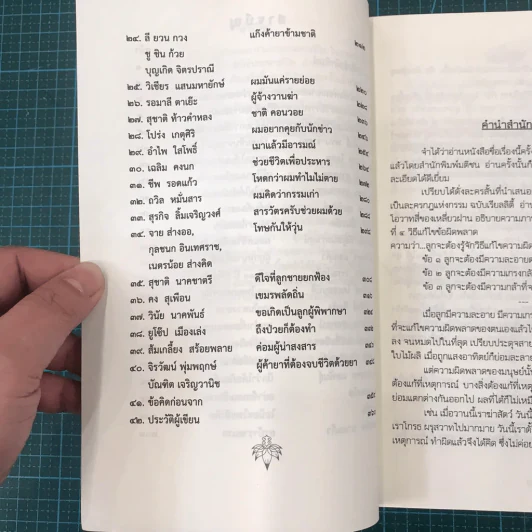 ๒๔. ลี ยวน กวง แก๊งค้ายาข้ามชาติ
ชู ชิน ก้วย
บุญเกิด จิตรปราณี
๒๕. วิเชียร แสนมหายักษ์ ผมมันแค่รายย่อย
๒๖. รอมาลี ตาเย๊ะ ผู้จ้างวานฆ่า
๒๗. สุชาติ ห้าวคำหลง ชาติ คอนวอย
๒๘. โปร่ง เกตุศิริ ผมอยากคุยกับนักข่าว
๒๙. อำไพ ใสโพธิ์ เมาแล้วมีอารมณ์
๓๐. เฉลิม คงนก ช่วยชีวิตเพื่อประหาร
๓๑. ชีพ รอดแก้ว โหดกว่าผมทำไมไม่ตาย
๓๒. ถวิล หมั่นสาร ผมคิดว่ากรรมเก่า
๓๓. สุรกิจ ลิ้มเจริญวงศ์ สารวัตรครับช่วยผมด้วย
๓๔. จาย ล่างออ, โทษกันให้วุ่น
กุลชนก อินเทศราช,
เนตรน้อย ส่างคิด
๓๕. สุชาติ นาคชาตรี ดีใจที่ลูกชายยกฟ้อง
๓๖. คง สุเพือน เขมรพลัดถิ่น
๓๗. วินัย นาคพันธ์ ขอเกิดเป็นลูกผู้พิพากษา
๓๘. ยูโซ๊ป เมืองเล่ง ถึงป่วยก็ต้องทำ
๓๙. ส้มเกลี้ยง สร้อยพลาย ค่อมผู้น่าสงสาร
๔๐. จิรวัฒน์ พุ่มพฤกษ์ ผู้ค้ายาที่ต้องจบชีวิตด้วยยา
บัณฑิต เจริญวานิช
๔๑. ข้อคิดก่อนจาก
๔๒. ประวัติผู้เขียน
คำนำสำนัก
จำได้ว่าอ่านหนังสือชื่อเรื่องนี้ครั้ง
แล้วโดยสำนักพิมพ์มติชน อ่านครั้งนั้นก็
ละเอียดได้ดีเยี่ยม
เปรียบได้ดั่งละครสั้นที่นำเสนอ
เป็นละครกฎแห่งกรรม ฉบับเรียลลิตี้
โอวาทสี่ของเหลี่ยวฝาน อธิบายความ
ที่ ๔ วิธีแก้ไขข้อผิดพลาด
ความว่า...ลูกจะต้องรู้จักวิธีแก้ไขความผิด
ข้อ ๑ ลูกจะต้องมีความละอาย
ข้อ ๒ ลูกจะต้องมีความเกรงกลัว
ข้อ ๓ ลูกจะต้องมีความกล้าที่จะ
เมื่อลูกมีความละอาย มีความ
ที่จะแก้ไขความผิดพลาดของตนเองแล้ว
ลง จนหมดไปในที่สุด
ใบไม้ผลิ เมื่อถูกแสงอาทิตย์ก็ย่อมละลาย
แต่ความผิดพลาดของมนุษย์นั้น
ต้องแก้ที่เหตุการณ์ บางสิ่งต้องแก้ที่
ย่อมแตกต่างกันออกไป ผลที่ได้ก็ไม่เหมือน
เช่น เมื่อวานนี้เราฆ่าสัตว์ วันนี้
เราโกรธ ผรุสวาทไปมากมาย วันนี้เรา
เหตุการณ์ ทำผิดแล้วจึงได้คิด ซึ่งไม่ค่อย